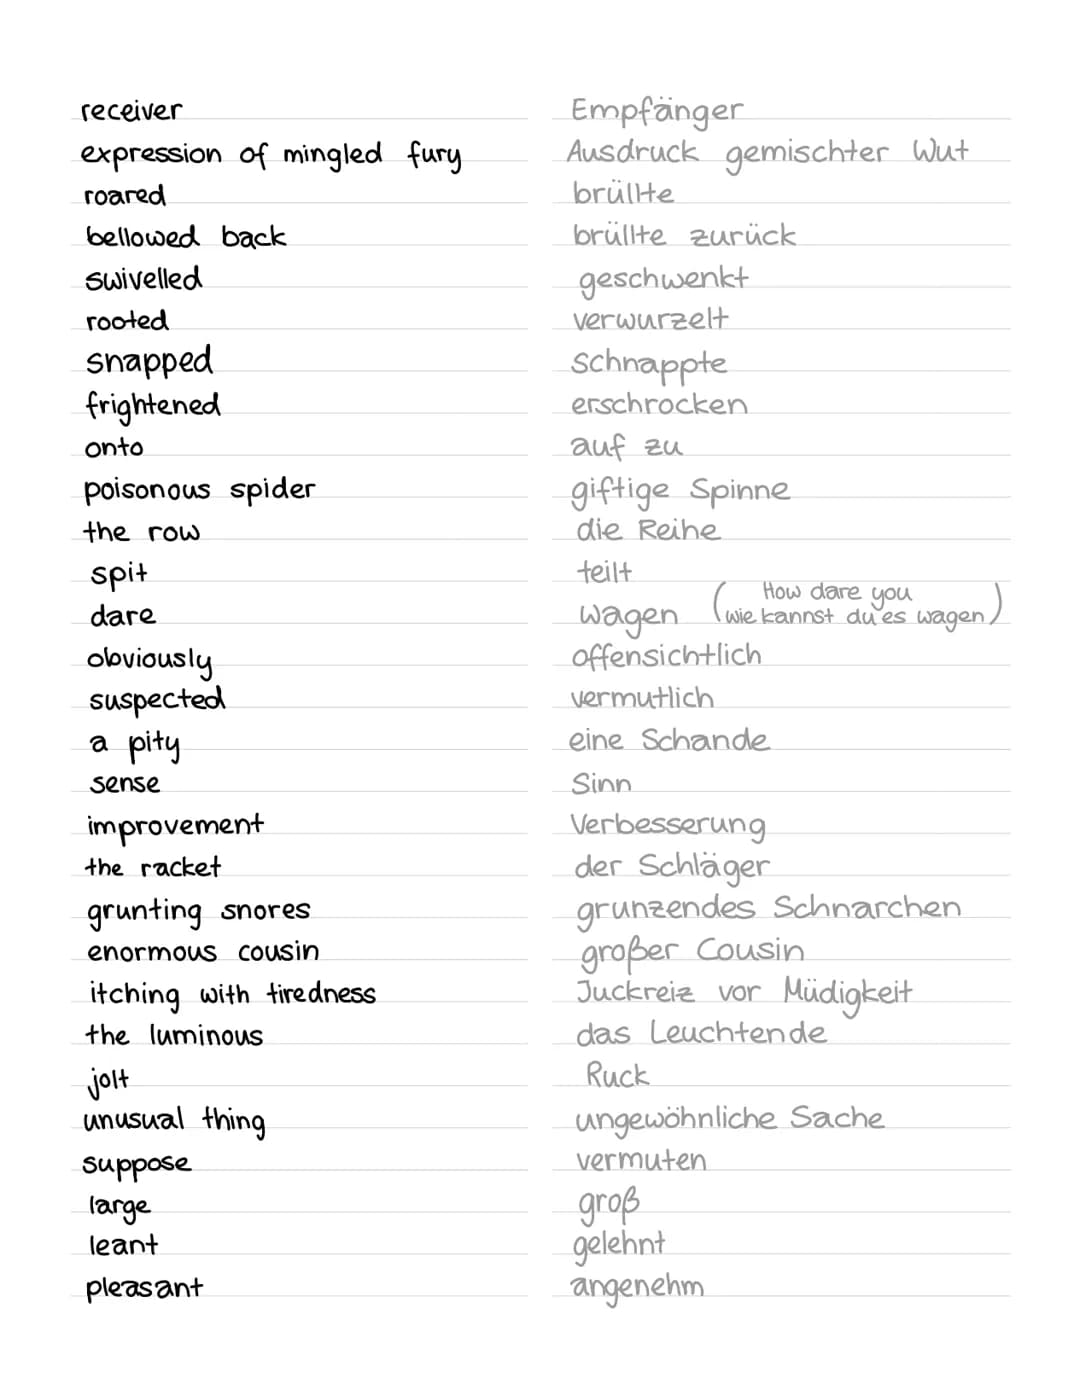 receiver Empfänger
expression of mingled fury Ausdruck gemischter Wut
roared brüllte
bellowed back brüllte zurück
swivelled geschwenkt
rooted verwurzelt
snapped schnappte
frightened erschrocken
onto auf zu
poisonous spider giftige Spinne
the row die Reihe
spit teilt
dare wagen (How dare you
wie kannst du es wagen)
obviously offensichtlich
suspected vermutlich
a pity eine Schande
sense Sinn
improvement Verbesserung
the racket der Schläger
grunting snores grunzendes Schnarchen
enormous cousin großer Cousin
itching with tiredness Juckreiz vor Müdigkeit
the luminous das Leuchtende
jolt Ruck
unusual thing ungewöhnliche Sache
suppose vermuten
large groß
leant gelehnt
pleasant angenehm